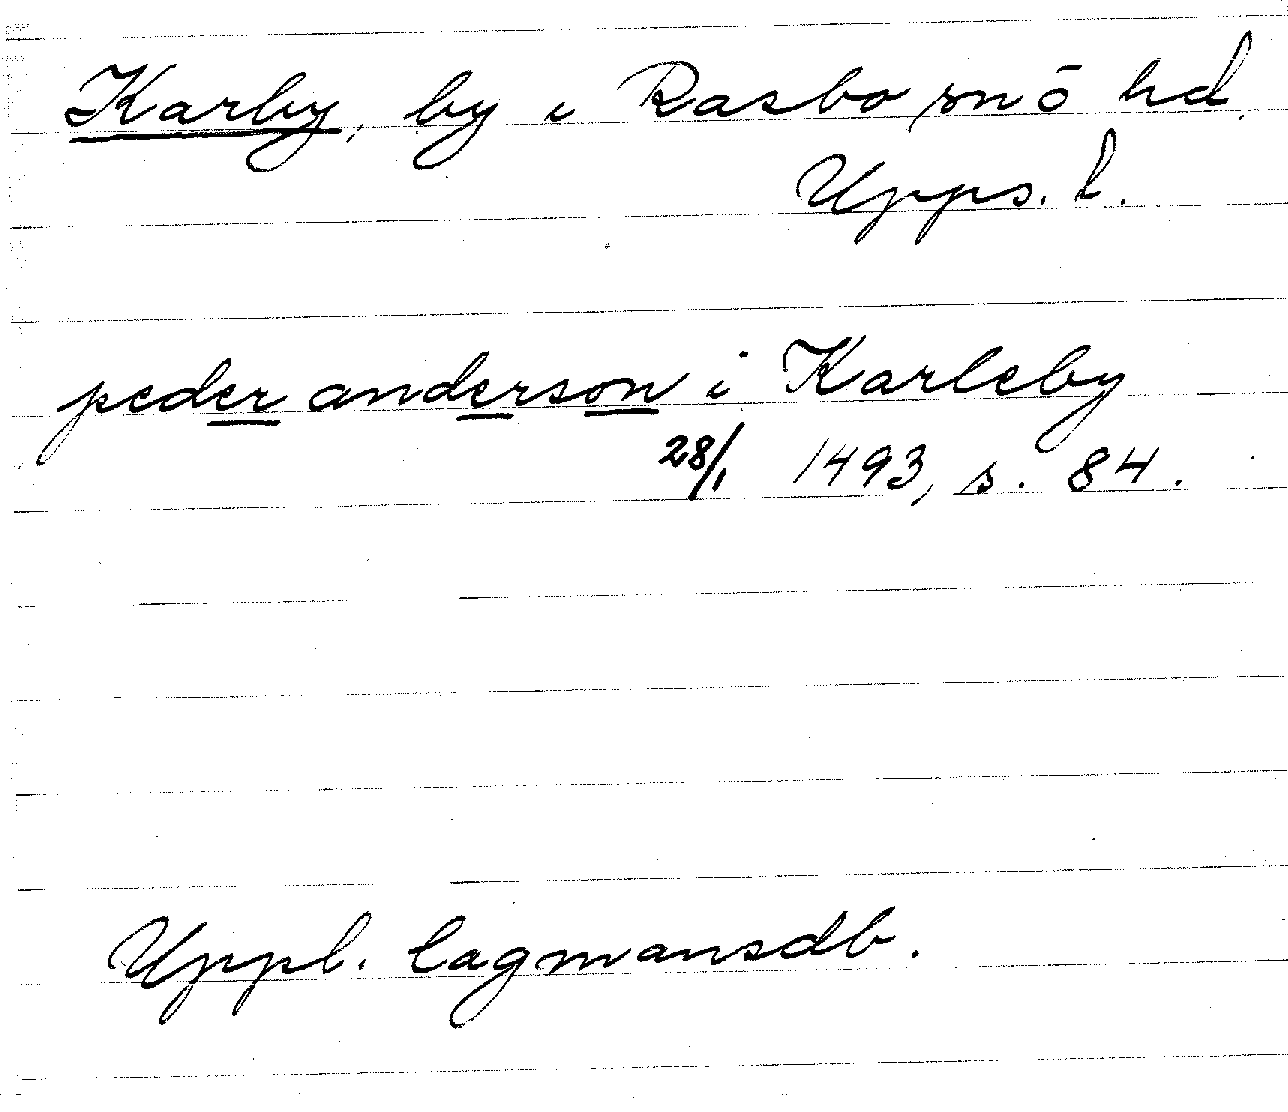 Karby, by i Rasbo sn o hd.
Upps. l.
peder anderson i Karleby
28/1 1493, s. 84.
Uppl. lagmansdb.